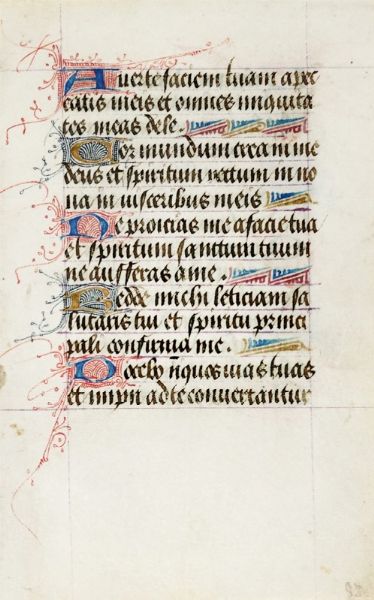 Averte faciem tuam a pec
catis meis et omnes iniquita
tes meas dele.
Cor mundum crea in me
deus et spiritum rectum in no
va in visceribus meis
Ne proicias me a facie tua
et spiritum sanctum tuum
ne aufferas a me.
Redde michi leticiam sa
lutaris tui et spiritu princi
pali confirma me.
Docebo iniquos vias tuas
et impii ad te convertantur